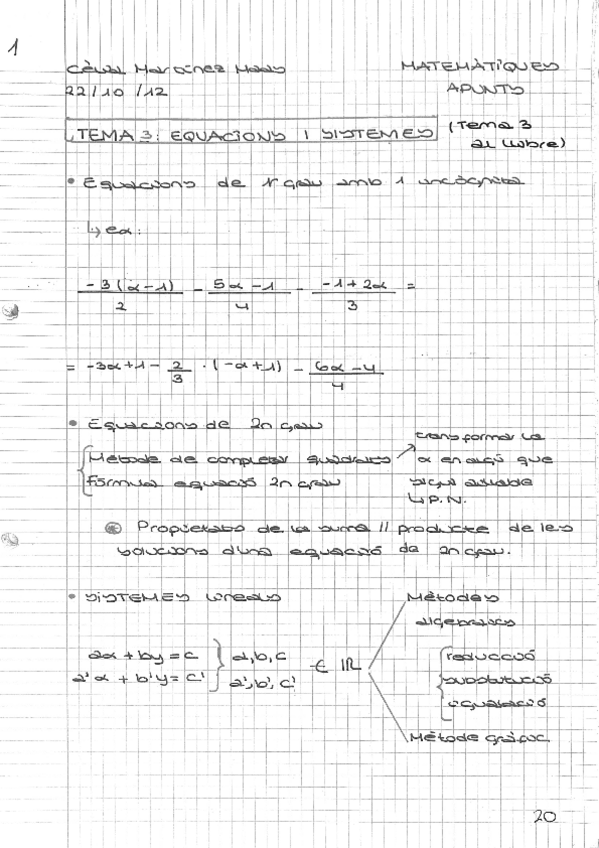 1
MATEMÀTIQUES
22/10/12
APUNTS
TEMA 3: EQUACIONS I SISTEMES
(Tema 3
al llibre)
• Equacions de 1r grau amb 1 incògnita
↳ ex:
-3(x-1)/2 - 5x-1/4 - -1+2x/3 =
= -3x+1 - 2/3 · (-x+1) - 6x-4/4
• Equacions de 2n grau
transformar la
Mètode de completar quadrats
x en algú que
Fórmula equació 2n grau
sigui aïllable
↳ P.N.
Propietats de la suma // producte de les
solucions d'una equació de 2n grau.
• SISTEMES lineals
Mètodes
algebraics
ax + by = c
a, b, c
a'x + b'y = c'
a', b', c'
∈ IR
reducció
substitució
igualació
Mètode gràfic
20